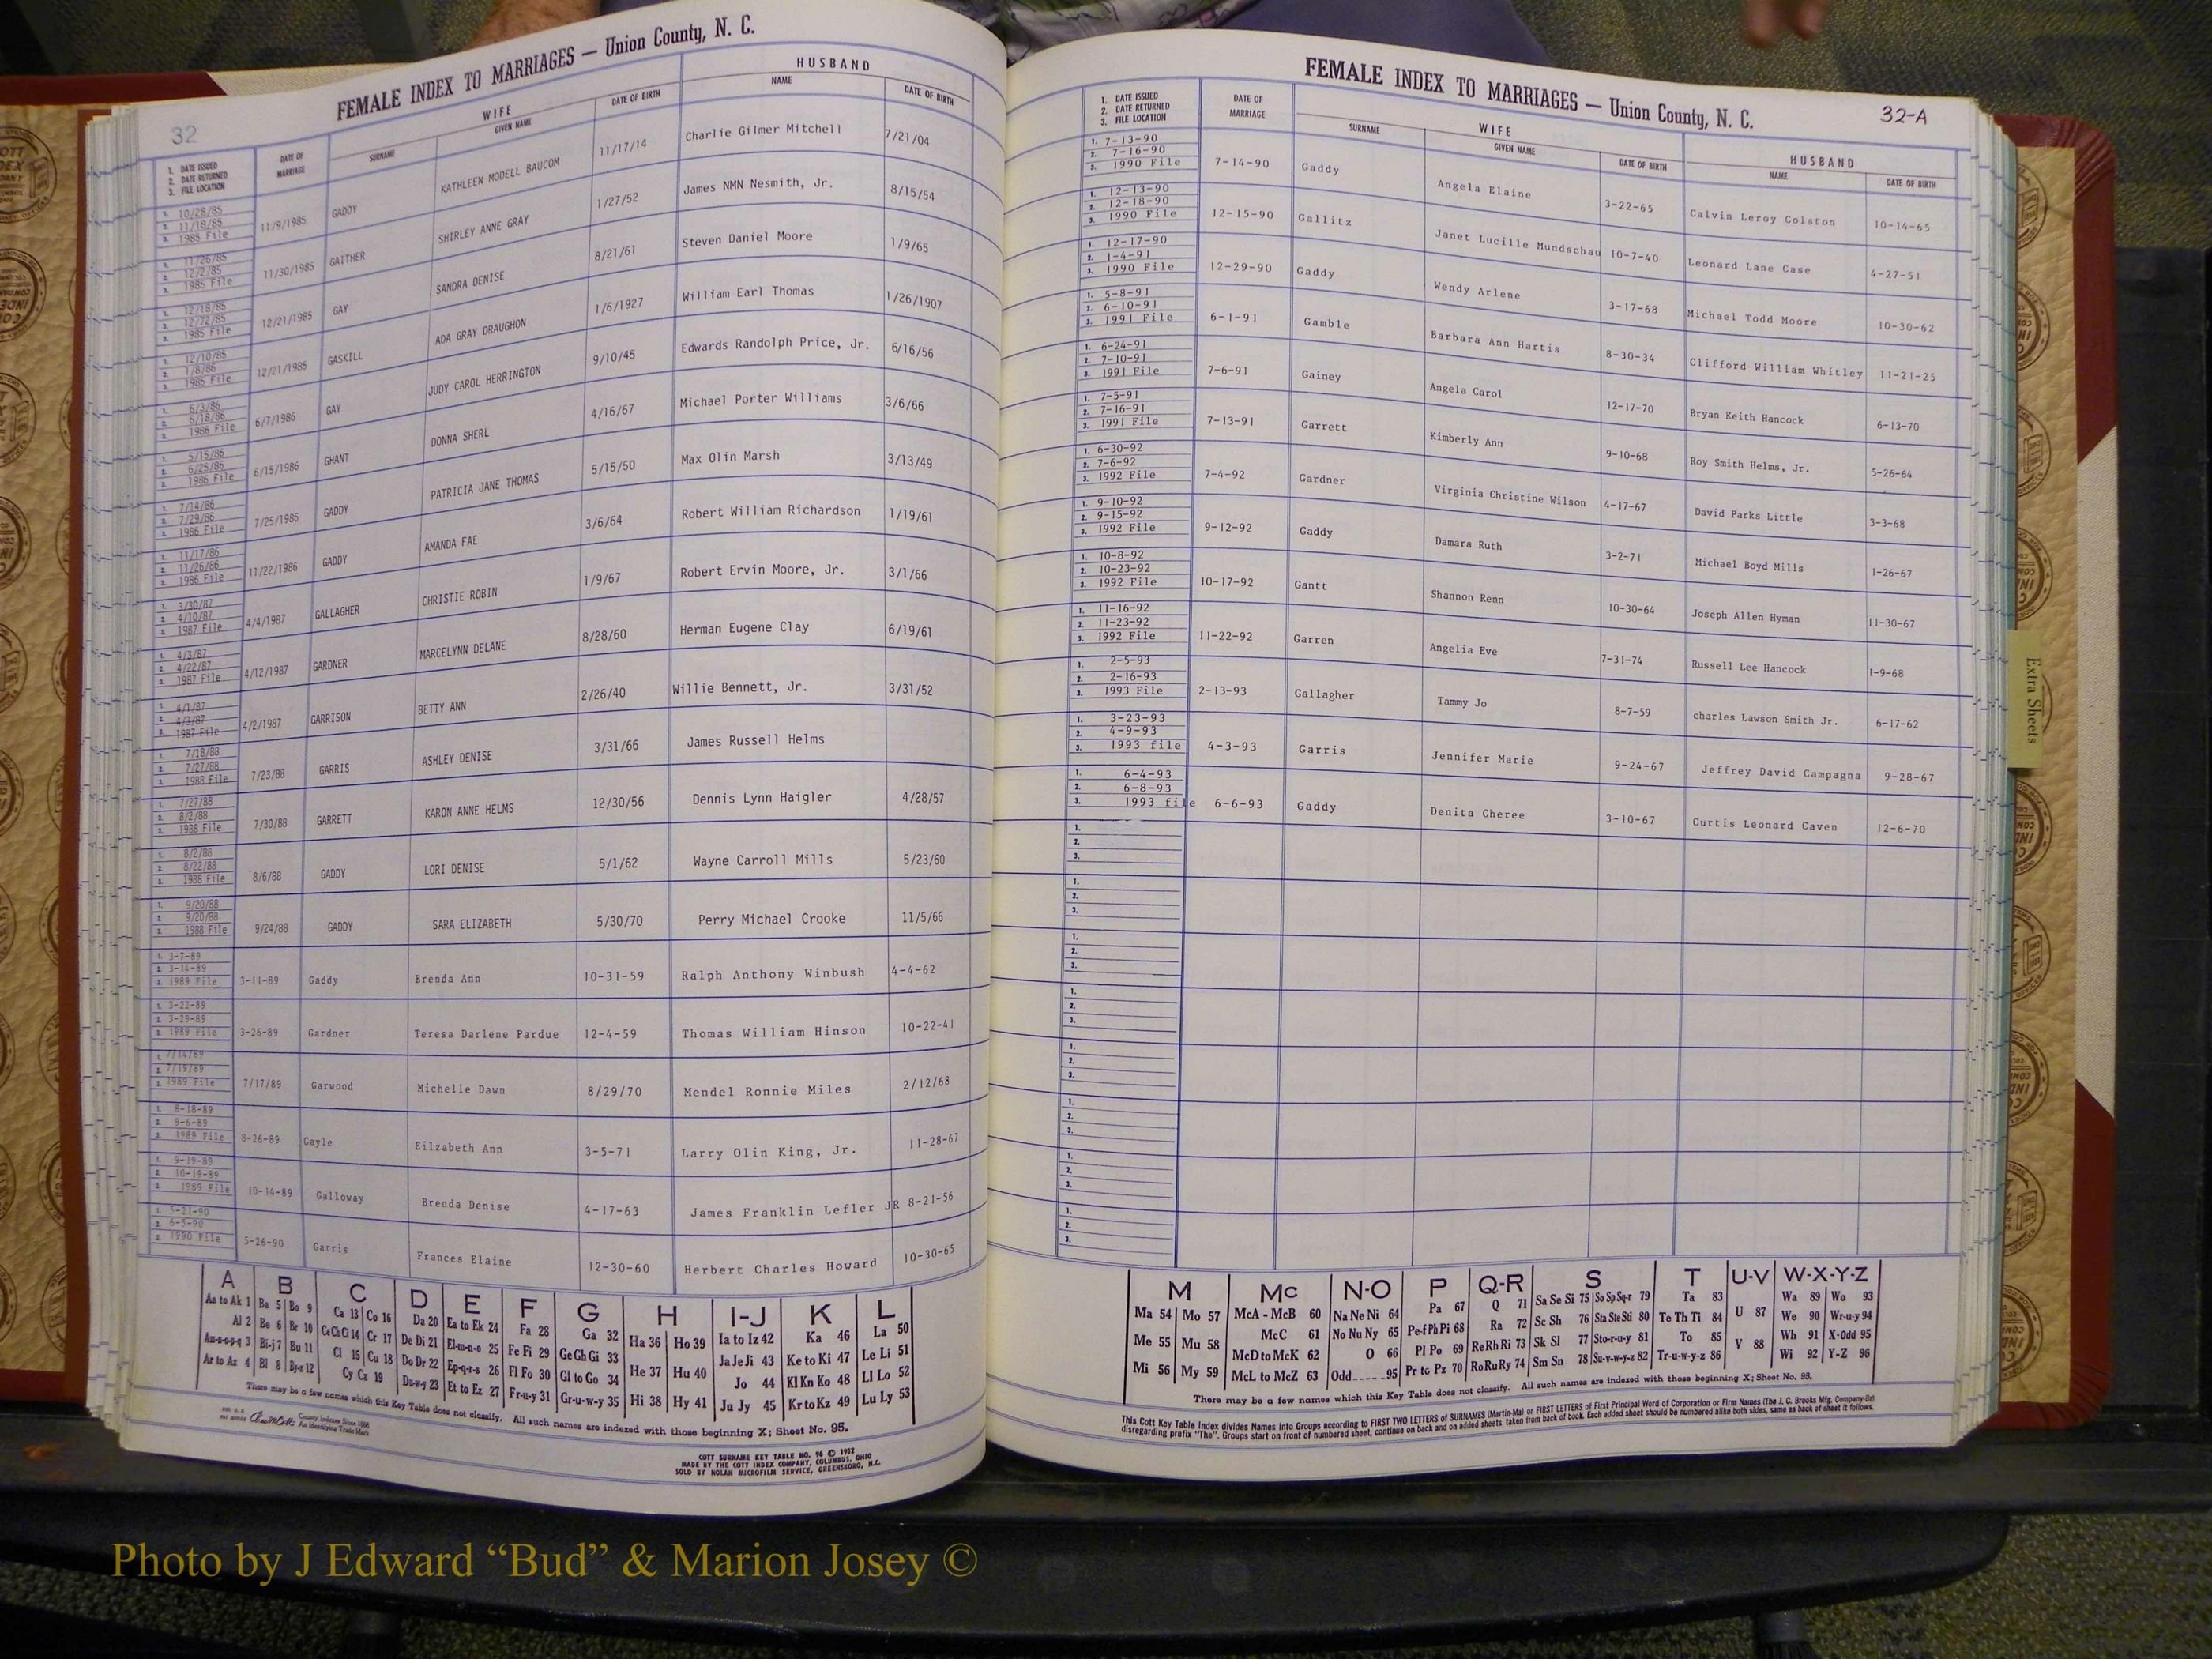 32
FEMALE INDEX TO MARRIAGES — Union County, N. C.
1. DATE ISSUED
2. DATE RETURNED
3. FILE LOCATION
DATE OF MARRIAGE
WIFE
SURNAME GIVEN NAME DATE OF BIRTH
HUSBAND
NAME DATE OF BIRTH
1. 10/28/85
2. 11/18/85
3. 1985 File
11/9/1985 GADDY KATHLEEN MODELL BAUCOM 11/17/14 Charlie Gilmer Mitchell 7/21/04
1. 11/26/85
2. 12/2/85
3. 1985 File
11/30/1985 GAITHER SHIRLEY ANNE GRAY 1/27/52 James NMN Nesmith, Jr. 8/15/54
1. 12/18/85
2. 12/72/85
3. 1985 File
12/21/1985 GAY SANDRA DENISE 8/21/61 Steven Daniel Moore 1/9/65
1. 12/10/85
2. 1/8/86
3. 1985 File
12/21/1985 GASKILL ADA GRAY DRAUGHON 1/6/1927 William Earl Thomas 1/26/1907
1. 6/3/86
2. 6/18/86
3. 1986 File
6/7/1986 GAY JUDY CAROL HERRINGTON 9/10/45 Edwards Randolph Price, Jr. 6/16/56
1. 5/15/86
2. 6/25/86
3. 1986 File
6/15/1986 GHANT DONNA SHERL 4/16/67 Michael Porter Williams 3/6/66
1. 7/14/86
2. 7/29/86
3. 1986 File
7/25/1986 GADDY PATRICIA JANE THOMAS 5/15/50 Max Olin Marsh 3/13/49
1. 11/17/86
2. 11/26/86
3. 1986 File
11/22/1986 GADDY AMANDA FAE 3/6/64 Robert William Richardson 1/19/61
1. 3/30/87
2. 4/10/87
3. 1987 File
4/4/1987 GALLAGHER CHRISTIE ROBIN 1/9/67 Robert Ervin Moore, Jr. 3/1/66
1. 4/3/87
2. 4/22/87
3. 1987 File
4/12/1987 GARDNER MARCELYNN DELANE 8/28/60 Herman Eugene Clay 6/19/61
1. 4/1/87
2. 4/3/87
3. 1987 File
4/2/1987 GARRISON BETTY ANN 2/26/40 Willie Bennett, Jr. 3/31/52
1. 7/18/88
2. 7/27/88
3. 1988 File
7/23/88 GARRIS ASHLEY DENISE 3/31/66 James Russell Helms
1. 7/27/88
2. 8/2/88
3. 1988 File
7/30/88 GARRETT KARON ANNE HELMS 12/30/56 Dennis Lynn Haigler 4/28/57
1. 8/2/88
2. 8/22/88
3. 1988 File
8/6/88 GADDY LORI DENISE 5/1/62 Wayne Carroll Mills 5/23/60
1. 9/20/88
2. 9/20/88
3. 1988 File
9/24/88 GADDY SARA ELIZABETH 5/30/70 Perry Michael Crooke 11/5/66
1. 3-7-89
2. 3-14-89
3. 1989 File
3-11-89 Gaddy Brenda Ann 10-31-59 Ralph Anthony Winbush 4-4-62
1. 3-22-89
2. 3-29-89
3. 1989 File
3-26-89 Gardner Teresa Darlene Pardue 12-4-59 Thomas William Hinson 10-22-41
1. 7/14/89
2. 7/19/89
3. 1989 File
7/17/89 Garwood Michelle Dawn 8/29/70 Mendel Ronnie Miles 2/12/68
1. 8-18-89
2. 9-6-89
3. 1989 File
8-26-89 Gayle Eilzabeth Ann 3-5-71 Larry Olin King, Jr. 11-28-67
1. 9-19-89
2. 10-19-89
3. 1989 File
10-14-89 Galloway Brenda Denise 4-17-63 James Franklin Lefler JR 8-21-56
1. 5-21-90
2. 6-5-90
3. 1990 File
5-26-90 Garris Frances Elaine 12-30-60 Herbert Charles Howard 10-30-65
A B C D E F G H I-J K L
Aa to Ak 1 Ba 5 Bo 9 Ca 13 Co 16 Da 20 Ea to Ek 24 Fa 28 Ga 32 Ha 36 Ho 39 Ia to Iz 42 Ka 46 La 50
Al 2 Be 6 Br 10 Ce Ch Ci 14 Cr 17 De Di 21 El-m-n-o 25 Fe Fi 29 Ge Gh Gi 33 He 37 Hu 40 Ja Je Ji 43 Ke to Ki 47 Le Li 51
Am-n-o-p-q 3 Bi-j 7 Bu 11 Cl 15 Cu 18 Do Dr 22 Ep-q-r-s 26 Fl Fo 30 Gl to Go 34 Hi 38 Hy 41 Jo 44 Kl Kn Ko 48 Ll Lo 52
Ar to Az 4 Bl 8 By-z 12 Cy Cz 19 Du-w-y 23 Et to Ez 27 Fr-u-y 31 Gr-u-w-y 35 Ju Jy 45 Kr to Kz 49 Lu Ly 53
There may be a few names which this Key Table does not classify. All such names are indexed with those beginning X; Sheet No. 95.
County Indexes Since 1888
An Identifying Trade Mark
COTT SURNAME KEY TABLE NO. 96 © 1957
MADE BY THE COTT INDEX COMPANY, COLUMBUS, OHIO
SOLD BY NOLAN MICROFILM SERVICE, GREENSBORO, N.C.
FEMALE INDEX TO MARRIAGES — Union County, N. C.
32-A
1. DATE ISSUED
2. DATE RETURNED
3. FILE LOCATION
DATE OF MARRIAGE
WIFE
SURNAME GIVEN NAME DATE OF BIRTH
HUSBAND
NAME DATE OF BIRTH
1. 7-13-90
2. 7-16-90
3. 1990 File
7-14-90 Gaddy Angela Elaine 3-22-65 Calvin Leroy Colston 10-14-65
1. 12-13-90
2. 12-18-90
3. 1990 File
12-15-90 Gallitz Janet Lucille Mundschau 10-7-40 Leonard Lane Case 4-27-51
1. 12-17-90
2. 1-4-91
3. 1990 File
12-29-90 Gaddy Wendy Arlene 3-17-68 Michael Todd Moore 10-30-62
1. 5-8-91
2. 6-10-91
3. 1991 File
6-1-91 Gamble Barbara Ann Hartis 8-30-34 Clifford William Whitley 11-21-25
1. 6-24-91
2. 7-10-91
3. 1991 File
7-6-91 Gainey Angela Carol 12-17-70 Bryan Keith Hancock 6-13-70
1. 7-5-91
2. 7-16-91
3. 1991 File
7-13-91 Garrett Kimberly Ann 9-10-68 Roy Smith Helms, Jr. 5-26-64
1. 6-30-92
2. 7-6-92
3. 1992 File
7-4-92 Gardner Virginia Christine Wilson 4-17-67 David Parks Little 3-3-68
1. 9-10-92
2. 9-15-92
3. 1992 File
9-12-92 Gaddy Damara Ruth 3-2-71 Michael Boyd Mills 1-26-67
1. 10-8-92
2. 10-23-92
3. 1992 File
10-17-92 Gantt Shannon Renn 10-30-64 Joseph Allen Hyman 11-30-67
1. 11-16-92
2. 11-23-92
3. 1992 File
11-22-92 Garren Angelia Eve 7-31-74 Russell Lee Hancock 1-9-68
1. 2-5-93
2. 2-16-93
3. 1993 File
2-13-93 Gallagher Tammy Jo 8-7-59 charles Lawson Smith Jr. 6-17-62
1. 3-23-93
2. 4-9-93
3. 1993 file
4-3-93 Garris Jennifer Marie 9-24-67 Jeffrey David Campagna 9-28-67
1. 6-4-93
2. 6-8-93
3. 1993 file
6-6-93 Gaddy Denita Cheree 3-10-67 Curtis Leonard Caven 12-6-70
1.
2.
3.
1.
2.
3.
1.
2.
3.
1.
2.
3.
1.
2.
3.
1.
2.
3.
1.
2.
3.
1.
2.
3.
Extra Sheets
M Mc N-O P Q-R S T U-V W-X-Y-Z
Ma 54 Mo 57 McA - McB 60 Na Ne Ni 64 Pa 67 Q 71 Sa Se Si 75 So Sp Sq-r 79 Ta 83 U 87 Wa 89 Wo 93
Me 55 Mu 58 McC 61 No Nu Ny 65 Pe-f Ph Pi 68 Ra 72 Sc Sh 76 Sta Ste Sti 80 Te Th Ti 84 V 88 We 90 Wr-u-y 94
Mi 56 My 59 McD to McK 62 O 66 Pl Po 69 Re Rh Ri 73 Sk Sl 77 Sto-r-u-y 81 To 85 Wh 91 X-Odd 95
McL to McZ 63 Odd 95 Pr to Pz 70 Ro Ru Ry 74 Sm Sn 78 Su-v-w-y-z 82 Tr-u-w-y-z 86 Wi 92 Y-Z 96
There may be a few names which this Key Table does not classify. All such names are indexed with those beginning X; Sheet No. 95.
This Cott Key Table Index divides Names into Groups according to FIRST TWO LETTERS of SURNAMES (Martin-Ma) or FIRST LETTERS of First Principal Word of Corporation or Firm Names (The J. C. Brooks Mfg. Company-Br)
disregarding prefix "The". Groups start on front of numbered sheet, continue on back and on added sheets taken from back of book. Each added sheet should be numbered alike both sides, same as back of sheet it follows.
Photo by J Edward “Bud” & Marion Josey ©